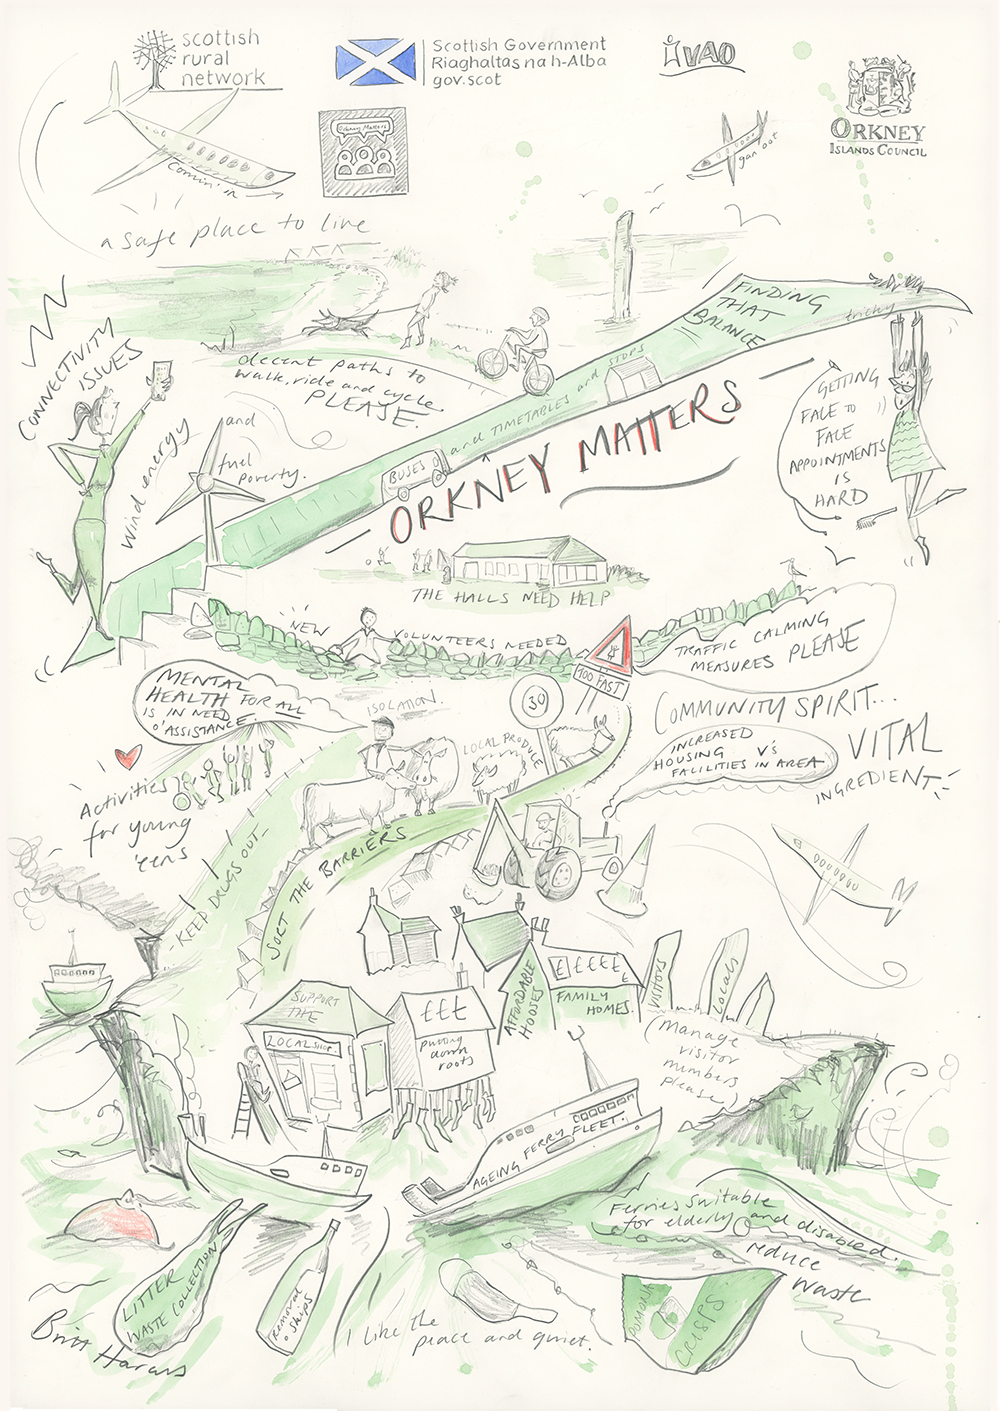 scottish
rural
network
Scottish Government
Riaghaltas na h-Alba
gov.scot
VAO
ORKNEY
ISLANDS COUNCIL
Orkney Matters
comin' in
gan oot
a safe place to live
FINDING
THAT
BALANCE
tricky
CONNECTIVITY
ISSUES
decent paths to
walk, ride and cycle
PLEASE.
BUSES and TIMETABLES and STOPS
ORKNEY MATTERS
GETTING
FACE TO
FACE
APPOINTMENTS
IS
HARD
wind energy
and
fuel
poverty.
THE HALLS NEED HELP
NEW VOLUNTEERS NEEDED
TOO FAST
TRAFFIC CALMING
MEASURES PLEASE
MENTAL
HEALTH FOR ALL
IS IN NEED
O'ASSISTANCE.
ISOLATION.
30
LOCAL PRODUCE
COMMUNITY SPIRIT...
VITAL
INGREDIENT
INCREASED
HOUSING V'S
FACILITIES IN AREA
Activities
for young
'eens
- KEEP DRUGS OUT -
SORT THE BARRIERS
SUPPORT
THE
LOCAL SHOP.
£££
putting
down
roots
AFFORDABLE
HOOSES
£££££
FAMILY
HOMES.
VISITORS
LOCALS
(Manage
visitor
numbers
please)
AGEING FERRY FLEET.
Ferries suitable
for elderly and disabled.
reduce
waste
LITTER
WASTE COLLECTION
Removal
o' ships
I like the
peace and quiet.
POMONA
CRISPS
Britt Harcus